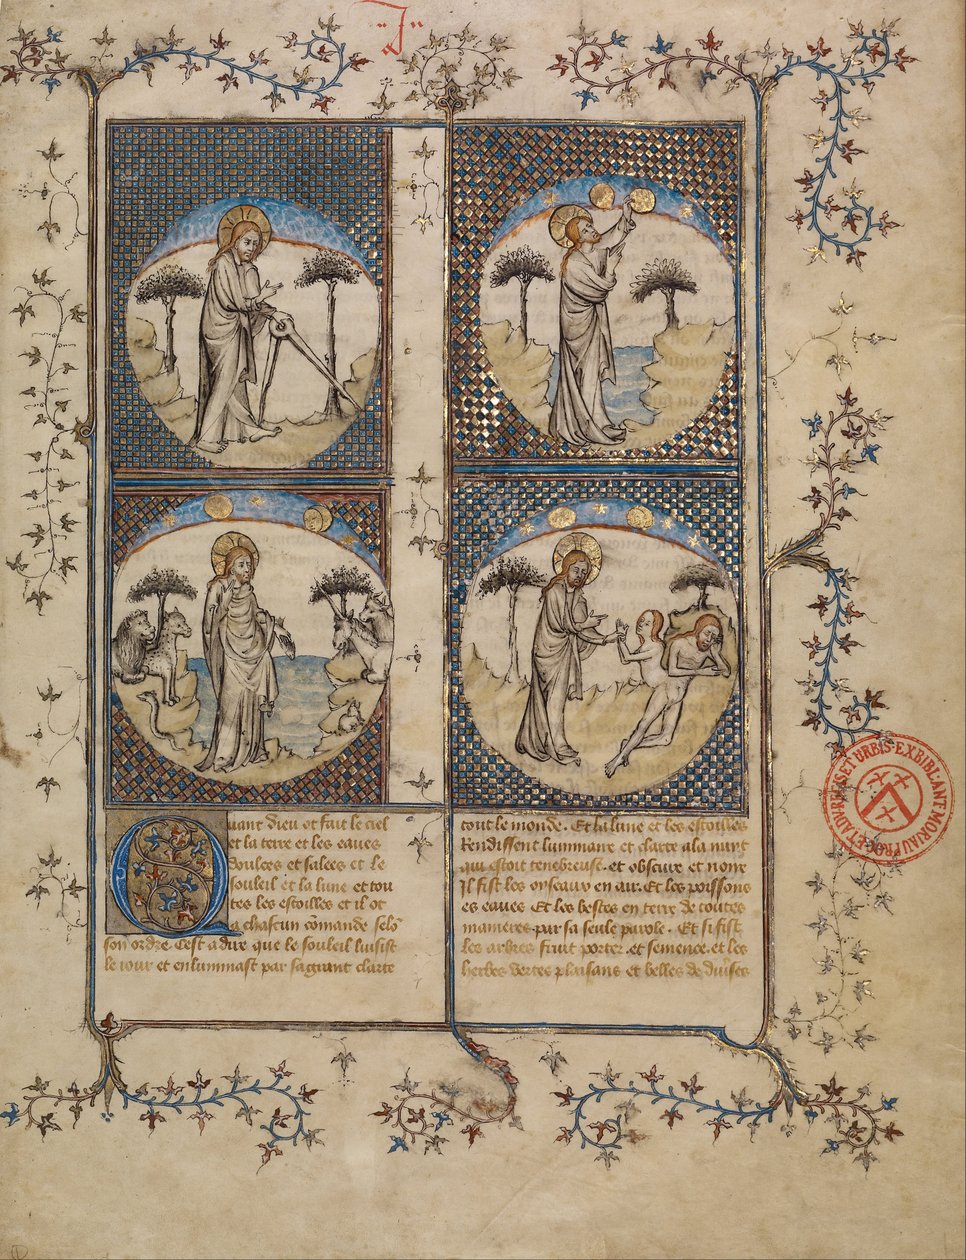 J
Quant dieu et fait le ciel
et la terre et les eaues
doulces et salees et le
souleil et la lune et tou
tes les estoilles et il ot
a chascun cōmande selō
son ordre. Cest a dire que le souleil luisist
le iour et enluminast par sa grant clarte
tout le monde. Et la lune et les estoilles
Rendissent lumiiare et clarte a la nuyt
qui estoit tenebreuse. et obscure et noire
Il fist les oyseaux en air. Et les poissons
es eaues Et les bestes en terre de toutes
manieres par sa seule parole. Et si fist
les arbres fruit porter. et semence. et les
herbes vertes plaisans et belles de diu̾ses
EX BIBL. ANT MORIAU PROC. ET ADV. REGIS ET URBIS